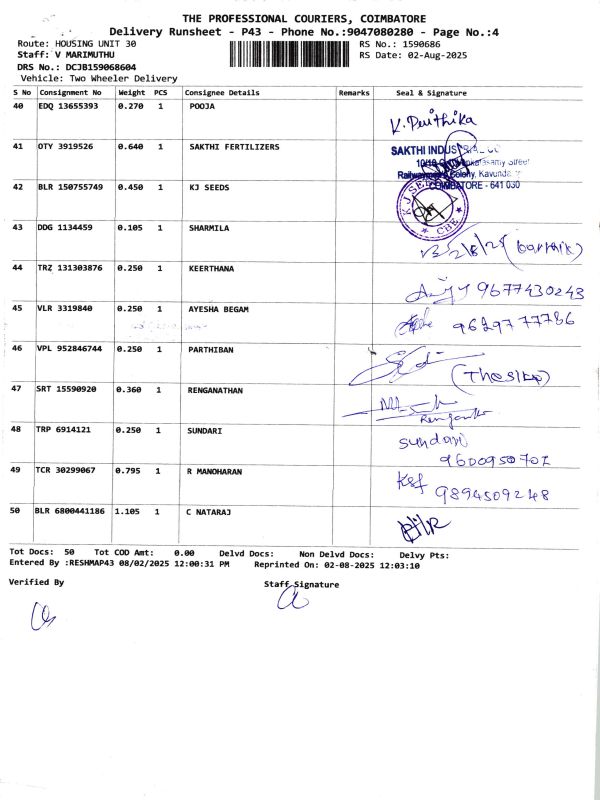 THE PROFESSIONAL COURIERS, COIMBATORE
Delivery Runsheet - P43 - Phone No.:9047080280 - Page No.:4
Route: HOUSING UNIT 30 RS No.: 1590686
Staff: V MARIMUTHU RS Date: 02-Aug-2025
DRS No.: DCJB159068604
Vehicle: Two Wheeler Delivery
S No Consignment No Weight PCS Consignee Details Remarks Seal & Signature
40 EDQ 13655393 0.270 1 POOJA
K. Perithika
41 OTY 3919526 0.640 1 SAKTHI FERTILIZERS
SAKTHI INDUS
Street
Railwaymen's Colony, Kavunda
COIMBATORE - 641 030
42 BLR 150755749 0.450 1 KJ SEEDS
KJ SEEDS CBE
43 DDG 1134459 0.105 1 SHARMILA
2/8/25 (Karthik)
44 TRZ 131303876 0.250 1 KEERTHANA
9677430243
45 VLR 3319840 0.250 1 AYESHA BEGAM
9629777786
46 VPL 952846744 0.250 1 PARTHIBAN
47 SRT 15590920 0.360 1 RENGANATHAN
48 TRP 6914121 0.250 1 SUNDARI
Sundari
9600950701
49 TCR 30299067 0.795 1 R MANOHARAN
9894509248
50 BLR 6800441186 1.105 1 C NATARAJ
Tot Docs: 50 Tot COD Amt: 0.00 Delvd Docs: Non Delvd Docs: Delvy Pts:
Entered By :RESHMAP43 08/02/2025 12:00:31 PM Reprinted On: 02-08-2025 12:03:10
Verified By Staff Signature